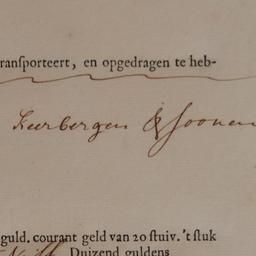 ransporteert, en opgedragen te heb-
Keerbergen & Soonen
guld. courant geld van 20 stuiv. 't stuk
Duizend guldens